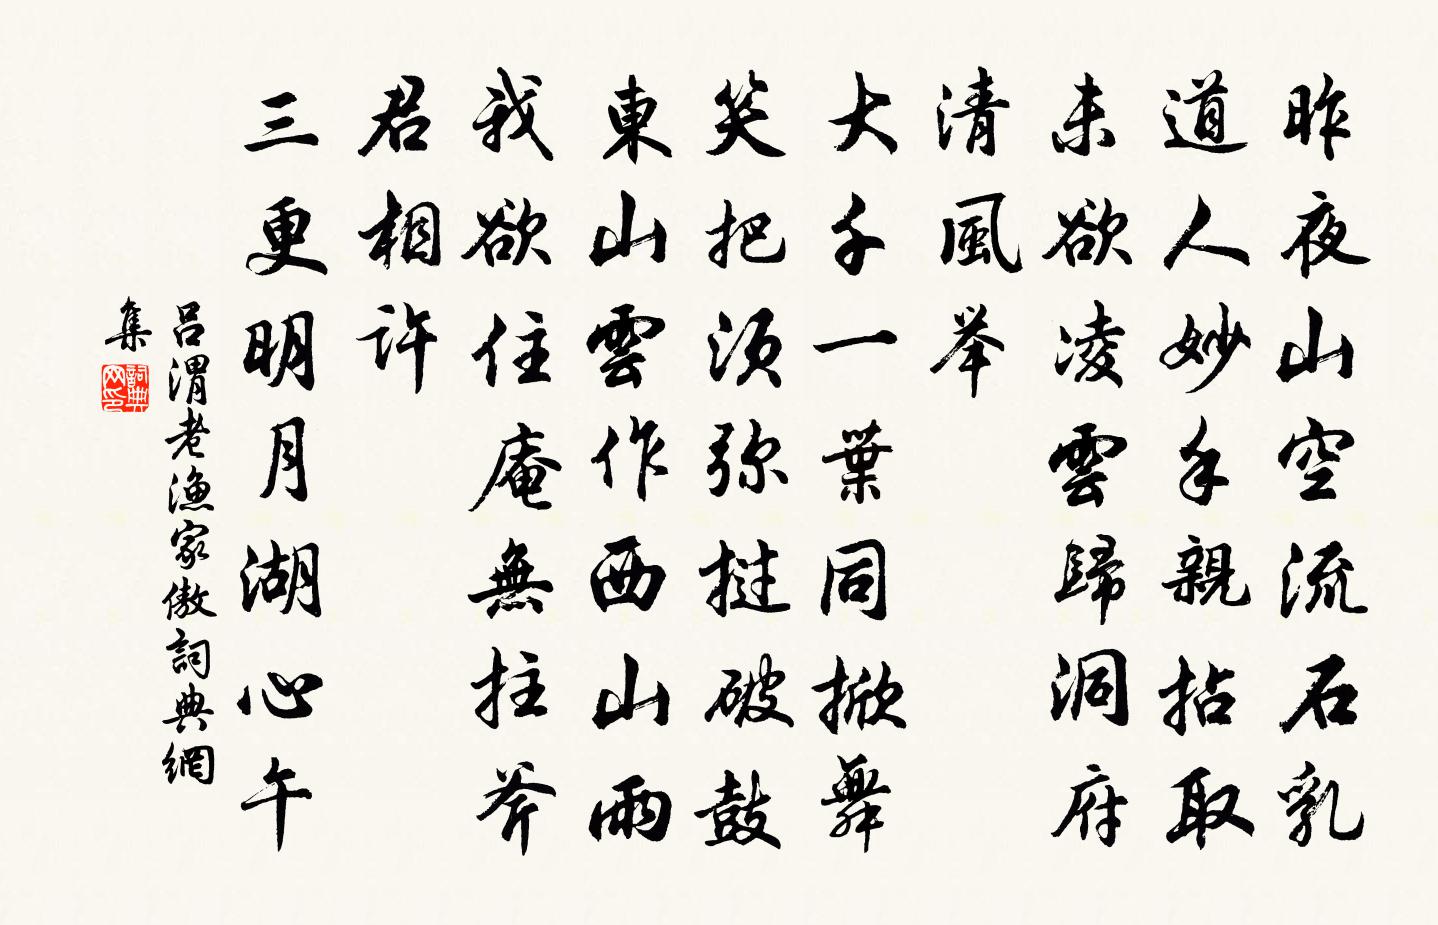 昨夜山空流石乳
道人妙手親拈取
未欲凌雲歸洞府
清風举
大千一葉同掀舞
笑把須弥挝破鼓
東山雲作西山雨
我欲住庵無拄斧
君相許
三更明月湖心午
吕渭老漁家傲詞典網
集
詞典网印